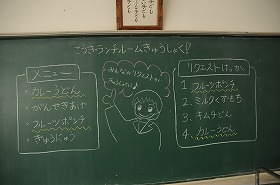 こうき・ランチルームきゅうしょく!
メニュー
・カレーうどん
・がんせきあげ
・フルーツポンチ
・ぎゅうにゅう
みんなのリクエストが
リクエストけっか
1. フルーツポンチ
2. ミルクくずもち
3. キムチどん
4. カレーうどん